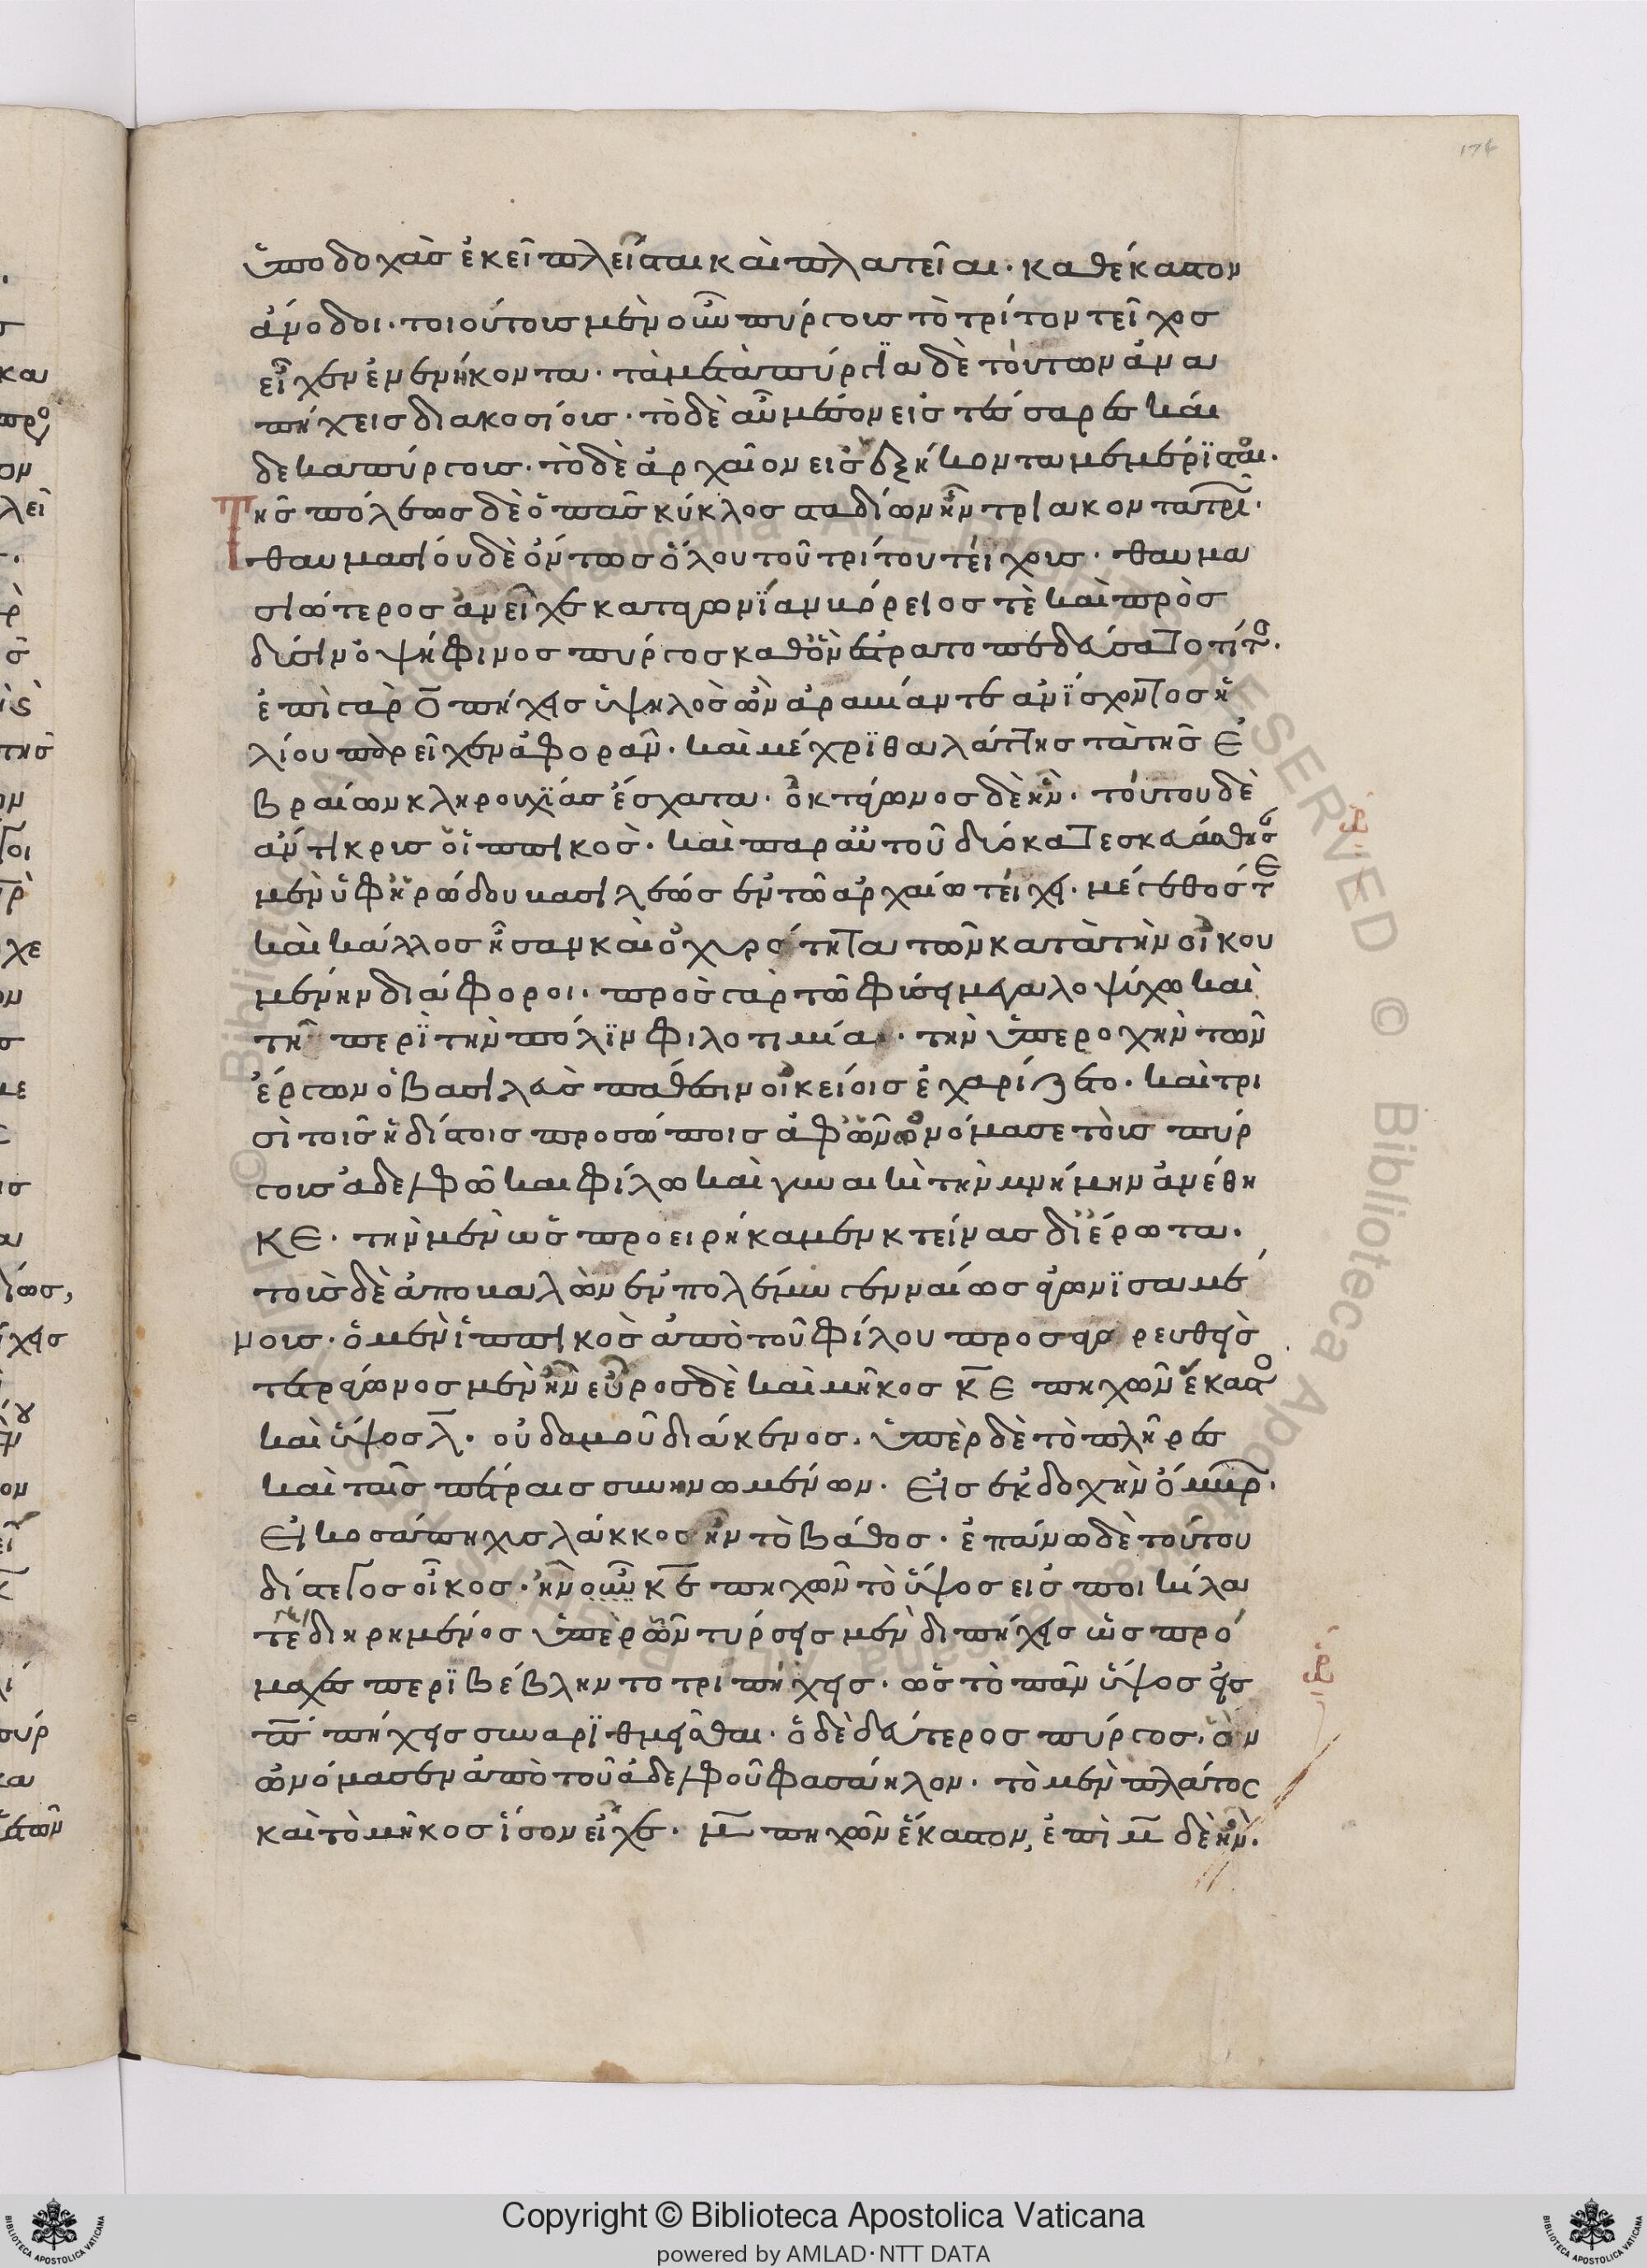 174
ὑποδοχὰσ ἐκεῖ πλεῖσται καὶ πλατεῖαι· καθέκαστον
ἄνοδοι· τοιούτουσ μὲν οὖν πύργουσ τὸ τρίτον τεῖχοσ
εἶχεν ἐνενήκοντα· τὰ μεταπύργϊα δὲ τούτων ἀνα
πήχεισ διακοσίουσ· τὸ δὲ αὖ μέσον εἰσ τέσσαρεσ καὶ
δεκα πύργουσ· τὸ δὲ ἀρχαῖον εἰσ ἑξήκοντα μεμέρϊσται·
Τῆσ πόλεωσ δὲ ὁ πᾶσ κύκλοσ σταδίων ἦν τριακοντατριῶ·
θαυμασίου δὲ ὄντωσ ὅλου τοῦ τρίτου τείχουσ· θαυμα
σιώτεροσ ἀνεῖχε κατα γωνϊαν βόρειοσ τὲ καὶ πρὸσ
δύσιν ὁ ψήφινοσ πύργοσ καθ ὃν ἐστρατοπεδεύσατο τίτοσ·
ἐπὶ γὰρ ο̅ πήχεισ ὑψηλὸσ ὢν ἀραβίαν τε ἀνϊσχοντοσ ἡ
λίου παρεῖχεν ἀφορᾶν· καὶ μέχρϊ θαλάττησ τὰ τῆσ Ἑ
βραίων κληρουχϊασ ἔσχατα· ὀκτάγωνοσ δὲ ἦν· τούτου δὲ
ἄντικρισ ὁ ἱππικὸσ· καὶ παραὐτοῦ δύο κατεσκευάσθησ
μὲν ὑφ ἡρώδου βασιλέωσ ἐν τῶ αρχαίω τείχει· μέγεθοσ τε
καὶ κάλλοσ ἦσαν καὶ ὀχυρότητα τῶν κατὰ τὴν οἰκου
μένην διάφοροι· πρὸσ γὰρ τῶ φύσει μεγαλοψύχω καὶ
τῆ περϊ τὴν πόλϊν φιλοτιμία· τὴν ὑπεροχὴν τῶν
ἔργων ὁ βασιλεὺσ πάθεσιν οἰκείοισ ἐχαρίζετο· καὶ τρι
σὶ τοῖσ ἡδίστοισ προσώποισ ἀφ ὧν ὠνόμασε τοὺσ πύρ
γουσ ἀδελφῶ καὶ φίλω καὶ γυναικὶ τὴν μνήμην ἀνέθη
ΚΕ· τὴν μὲν ὡσ προειρήκαμεν κτείνασ δϊ ἔρωτα·
τοὺσ δὲ ἀποβαλὼν ἐν πολέμω γενναίωσ ἀγωνϊσαμέ
νουσ· ὁ μὲν ἱππικὸσ ἀπὸ τοῦ φίλου προσαγορευθεὶσ
τετράγωνοσ μὲν ἦν εὖροσ δὲ καὶ μῆκοσ κ̅ε̅ πηχῶν ἕκαστον
καὶ ὕψοσ λ̅· οὐδαμοῦ διάκενοσ· ὑπὲρ δὲ τὸ πλῆρεσ
καὶ ταῖσ πέτραισ συνηνωμένων· Εἰσ ἐκδοχὴν ὄμβρων·
Εἰκοσάπηχυσ λάκκοσ ἦν τὸ βάθοσ· ἐπάνω δὲ τούτου
δίστεγοσ οἶκοσ· ἦν οὖν κ̅ε̅ πηχῶν τὸ ὕψοσ εἰσ ποικίλα
τέγη διηρημένοσ ὑπὲρ ὧν τύρσεισ μὲν διπήχεισ ὡσ πρό
μαχεσ περϊβέβληντο τριπήχεισ· ὡσ τὸ πᾶν ὕψοσ εἰσ
π̅ πήχεισ συναρϊθμεῖσθαι· ὁ δὲ δεύτεροσ πύργοσ· ὃν
ὠνόμασεν ἀπὸ τοῦ ἀδελφοῦ φασάηλον· τὸ μὲν πλάτοσ
καὶ τὸ μῆκοσ ἴσον εἶχε· μ̅ πηχῶν ἕκαστον, ἐπὶ μ̅ δὲ ἦν·
© Biblioteca Apostolica Vaticana ALL RIGHTS RESERVED
Copyright © Biblioteca Apostolica Vaticana
powered by AMLAD·NTT DATA